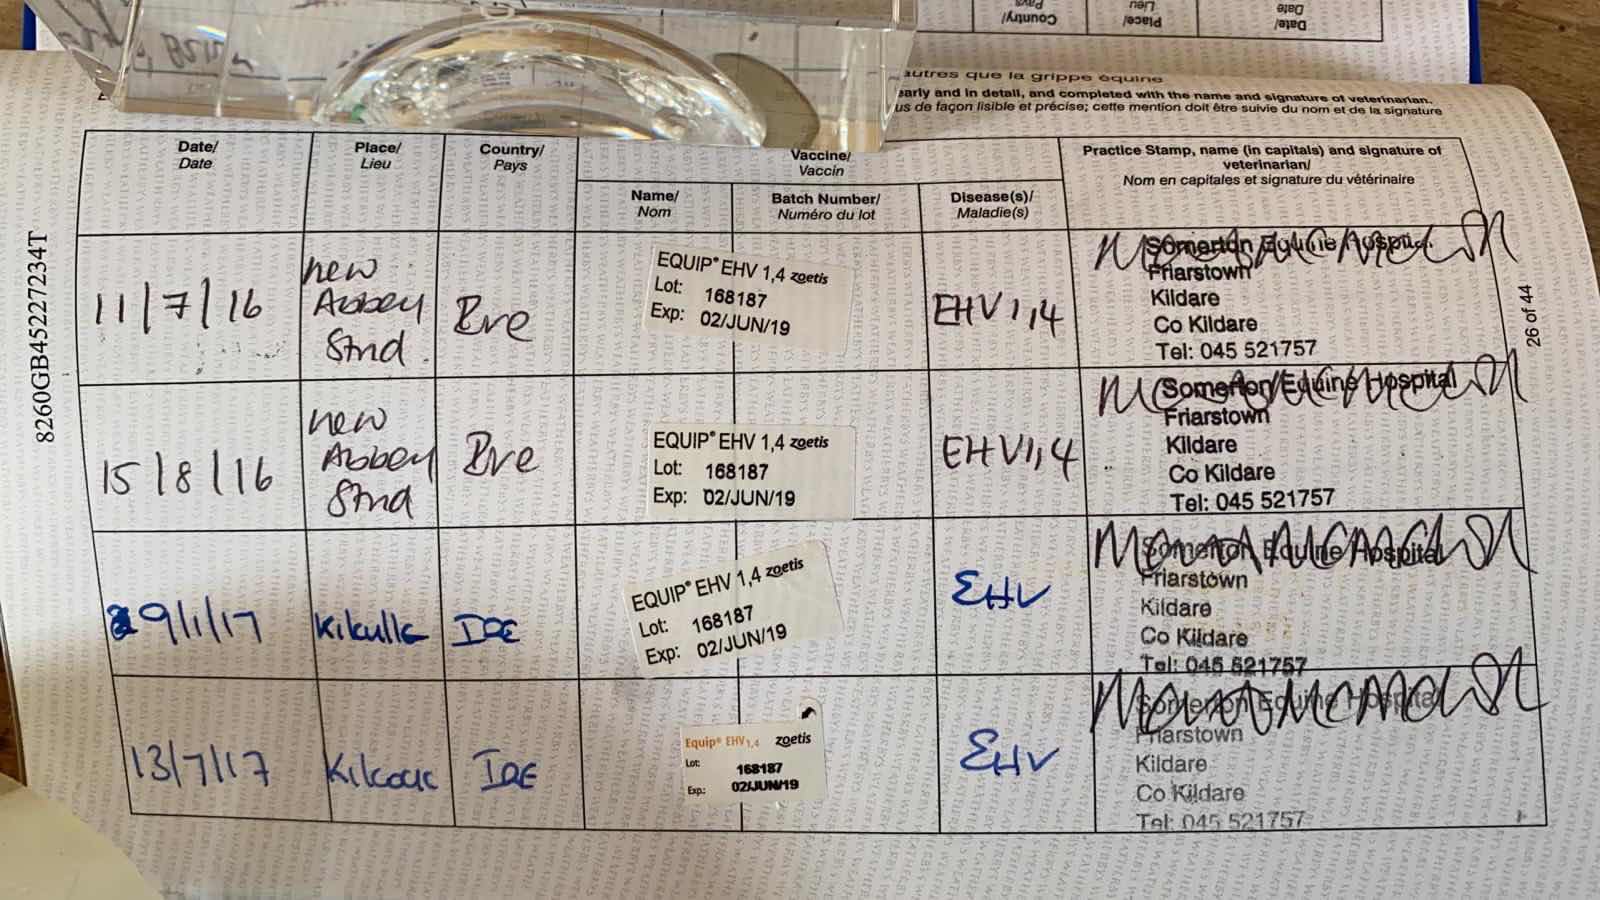 Country/ Place/ Date/
Pays Lieu Date
autres que la grippe équine
early and in detail, and completed with the name and signature of veterinarian.
us de façon lisible et précise; cette mention doit être suivie du nom et de la signature
Date/ Place/ Country/ Vaccine/ Practice Stamp, name (in capitals) and signature of
Date Lieu Pays Vaccin veterinarian/
Name/ Batch Number/ Disease(s)/ Nom en capitales et signature du vétérinaire
Nom Numéro du lot Maladie(s)
8260GB452272234T
26 of 44
11/7/16
new
Abbey
Stnd
Eire
EQUIP® EHV 1,4 zoetis
Lot: 168187
Exp: 02/JUN/19
EHV1,4
Somerton Equine Hospital
Friarstown
Kildare
Co Kildare
Tel: 045 521757
15/8/16
new
Abbey
Stnd
Eire
EQUIP® EHV 1,4 zoetis
Lot: 168187
Exp: 02/JUN/19
EHV1,4
Somerton Equine Hospital
Friarstown
Kildare
Co Kildare
Tel: 045 521757
9/1/17
Kilculle
IRE
EQUIP® EHV 1,4 zoetis
Lot: 168187
Exp: 02/JUN/19
EHV
Somerton Equine Hospital
Friarstown
Kildare
Co Kildare
Tel: 045 521757
13/7/17
Kilcock
IRE
Equip® EHV1,4 zoetis
Lot: 168187
Exp.: 02/JUN/19
EHV
Somerton Equine Hospital
Friarstown
Kildare
Co Kildare
Tel: 045 521757